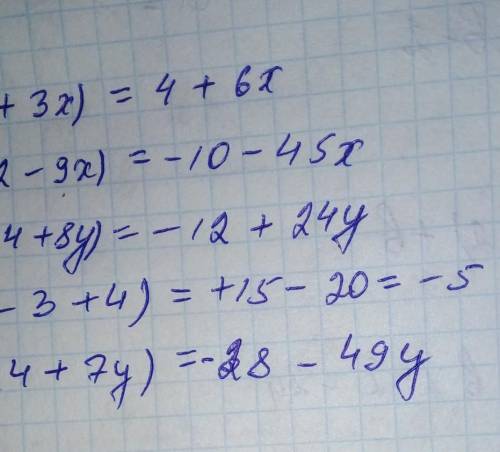 + 3x) = 4 + 6x
2 - 9x) = -10 - 45x
4 + 8y) = -12 + 24y
- 3 + 4) = +15 - 20 = -5
4 + 7y) = -28 - 49y